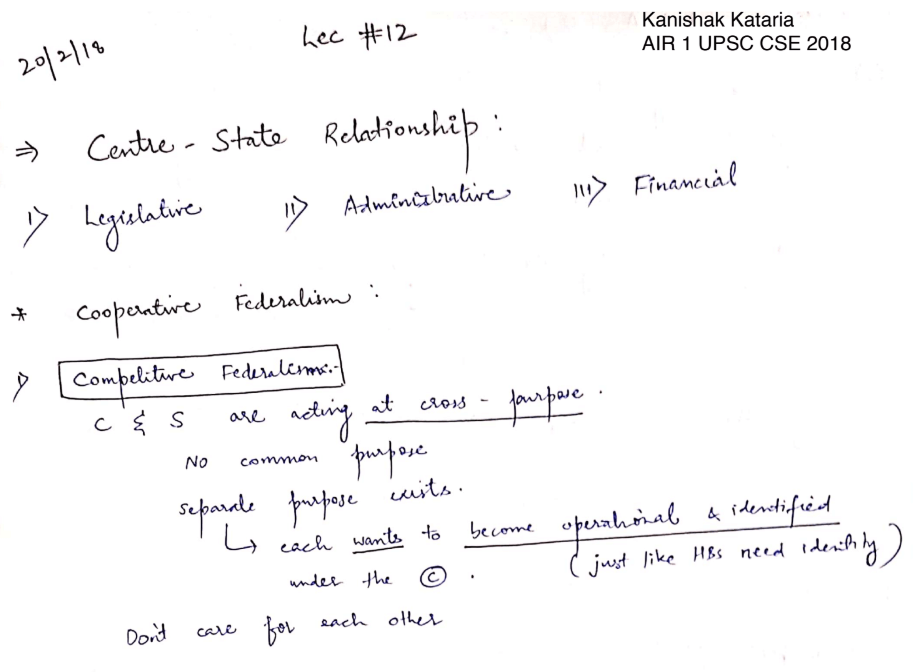 20/2/18
Lec #12
Kanishak Kataria
AIR 1 UPSC CSE 2018
⇒ Centre - State Relationship :
I> Legislative II> Administrative III> Financial
* Cooperative Federalism :
I> Competitive Federalism:-
C & S are acting at cross - purpose .
No common purpose
separate purpose exists.
↳ each wants to become operational & identified
under the Ⓒ . (just like HBs need identity)
Don't care for each other